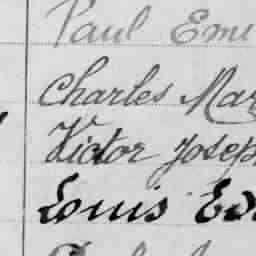 Paul Emi
Charles Mar
Victor Joseph
Louis Ed